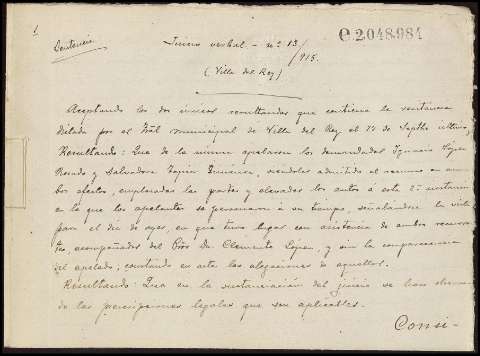 1
Sentencia
Juicio verbal - nº 13/915.
C2048984
(Villa del Rey)
Aceptando los dos únicos resultandos que contiene la sentencia
dictada por el Tbal municipal de Villa del Rey el 14 de Septbre último,
Resultando: Que de la misma apelaron los demandados Ignacio López
Rosado y Salvadora, siendoles admitido el recurso en am
bos efectos, emplazadas las partes y elevados los autos a esta 2ª instancia
en la que los apelantes se personaron á su tiempo, señalándose la vista
para el dia de ayer, en que tuvo lugar con asistencia de ambos recurren
tes, acompañados del Clemente López, y sin la comparecencia
del apelado; constando en acta las alegaciones de aquellos.
Resultando: Que en la sustanciacion del juicio se han observa
do las prescripciones legales que son aplicables.
Consi-